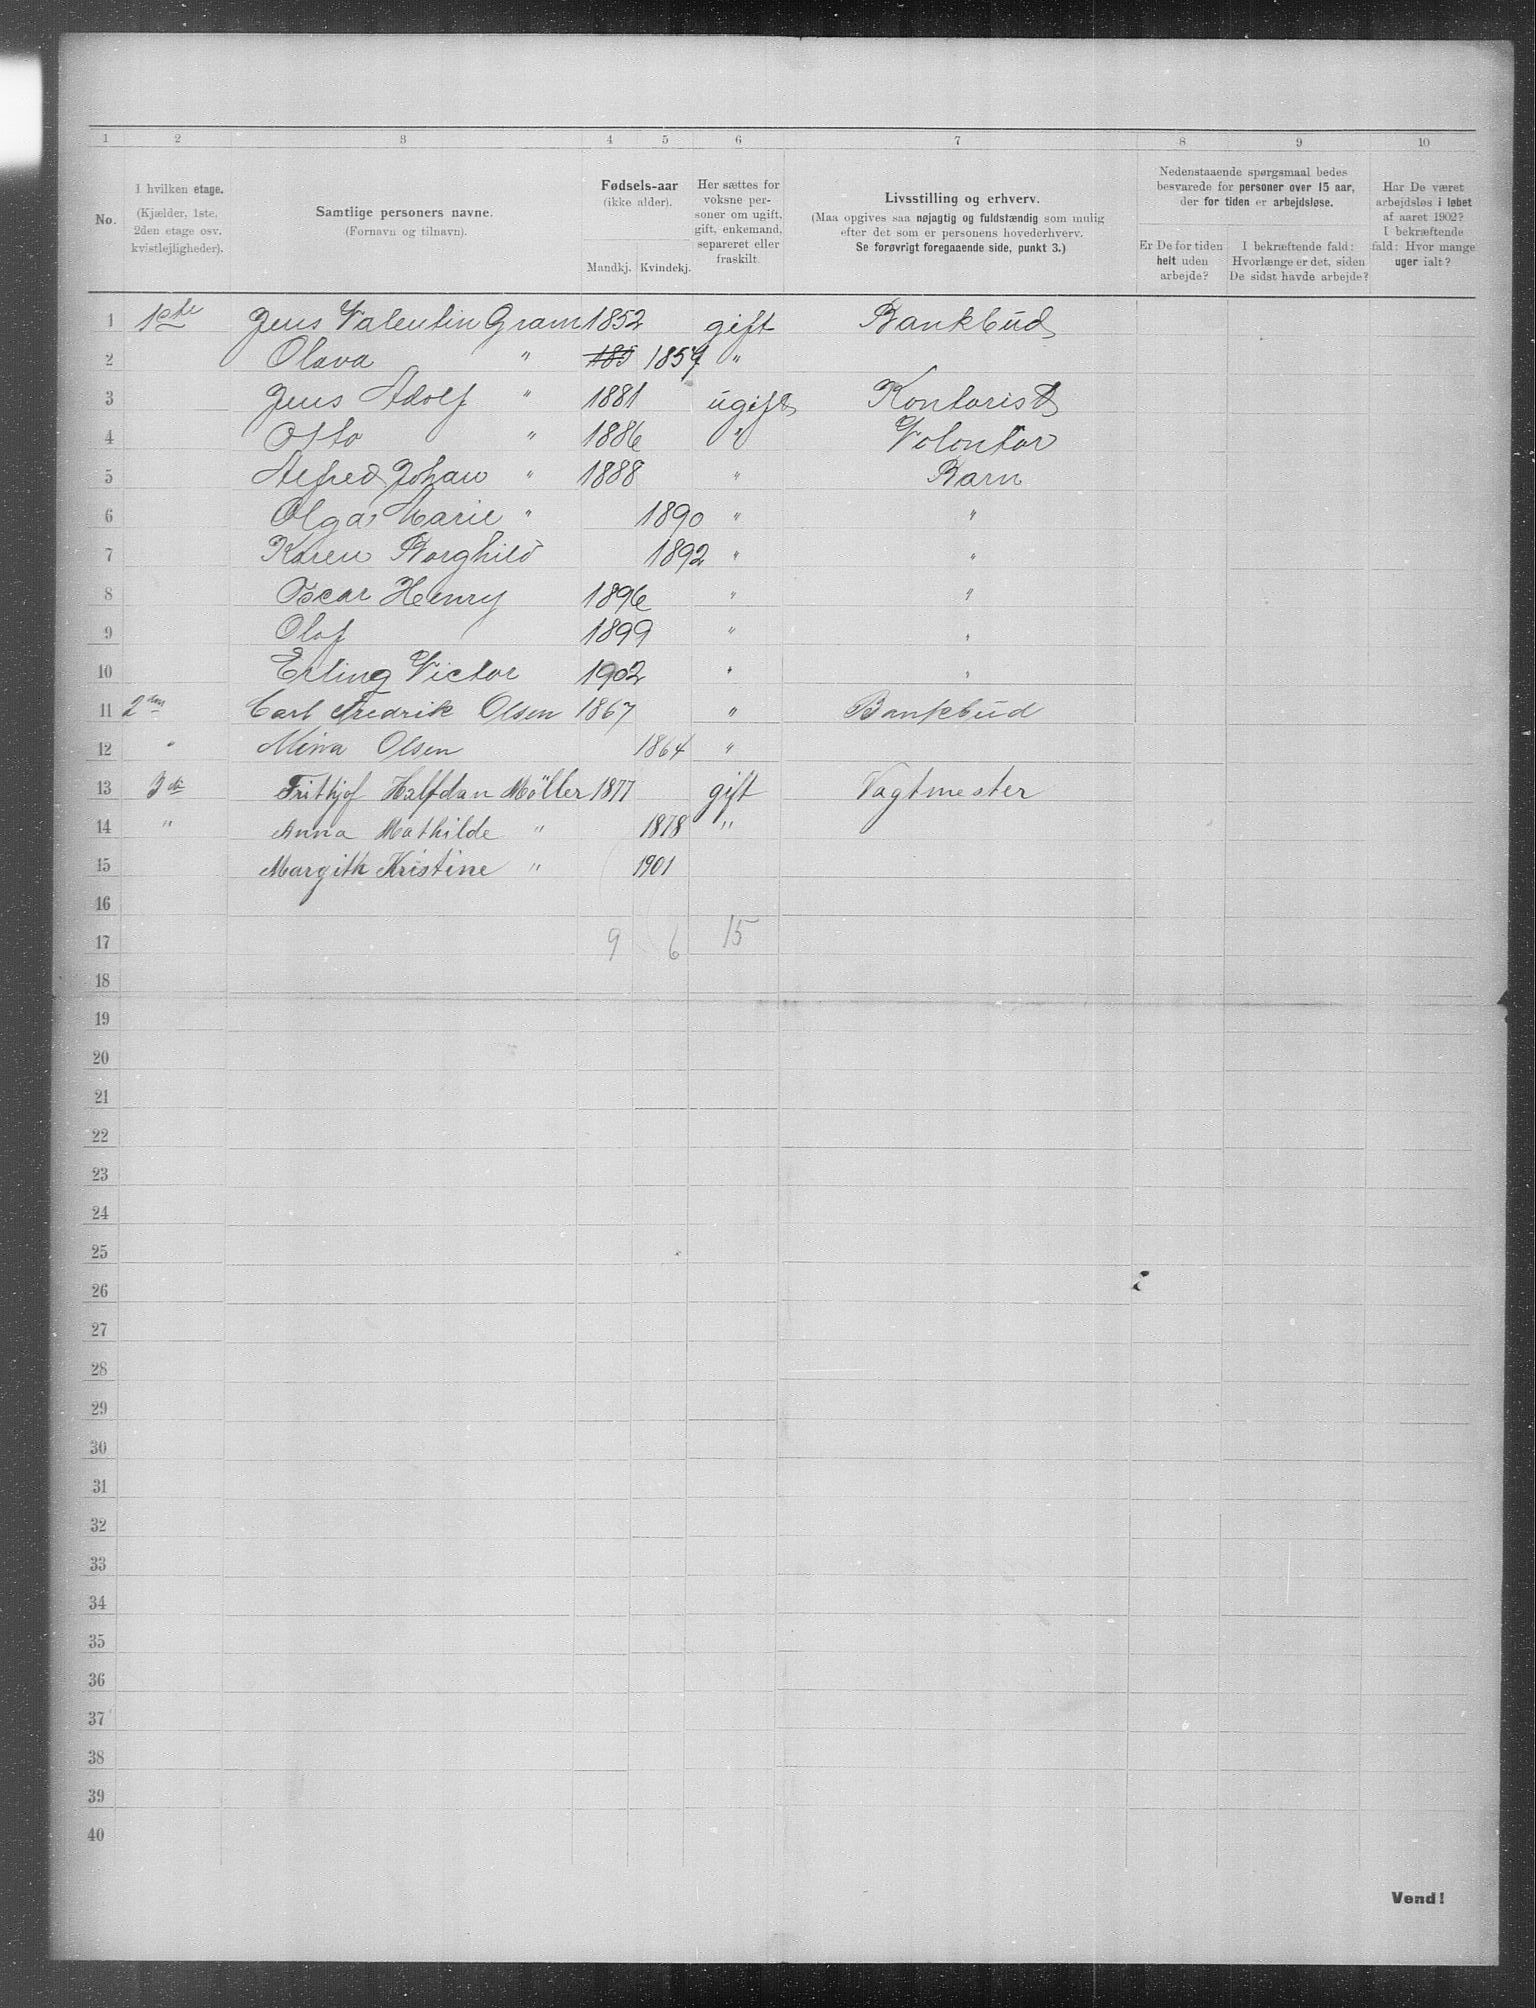 1 2 3 4 5 6 7 8 9 10
No.
I hvilken etage.
(Kjælder, 1ste,
2den etage osv.
kvistlejligheder).
Samtlige personers navne.
(Fornavn og tilnavn).
Fødsels-aar
(ikke alder).
Mandkj. Kvindekj.
Her sættes for
voksne per-
soner om ugift,
gift, enkemand,
separeret eller
fraskilt.
Livsstilling og erhverv.
(Maa opgives saa nøjagtig og fuldstændig som mulig
efter det som er personens hovederhverv.
Se forøvrigt foregaaende side, punkt 3.)
Nedenstaaende spørgsmaal bedes
besvarede for personer over 15 aar,
der for tiden er arbejdsløse.
Er De for tiden
helt uden
arbejde?
I bekræftende fald:
Hvorlænge er det, siden
De sidst havde arbejde?
Har De været
arbejdsløs i løbet
af aaret 1902?
I bekræftende
fald: Hvor mange
uger ialt?
1 1ste Jens Valentin Gram 1852 gift Bankbud
2 Olava " 185 1857 "
3 Jens Adolf " 1881 ugift Kontorist
4 Otto " 1886 " Volontør
5 Alfred Johan " 1888 " Barn
6 Olga Marie " 1890 " "
7 Karen Borghild 1892 " "
8 Oscar Henry 1896 " "
9 Olaf 1899 " "
10 Erling Victor 1902 " "
11 2den Carl Fredrik Olsen 1867 " Bankbud
12 " Mina Olsen 1864 "
13 3die Frithjof Halfdan Möller 1877 gift Vagtmester
14 " Anna Mathilde " 1878 "
15 Margith Kristine " 1901
16
17 9 6 15
18
19
20
21
22
23
24
25
26
27
28
29
30
31
32
33
34
35
36
37
38
39
40
Vend!